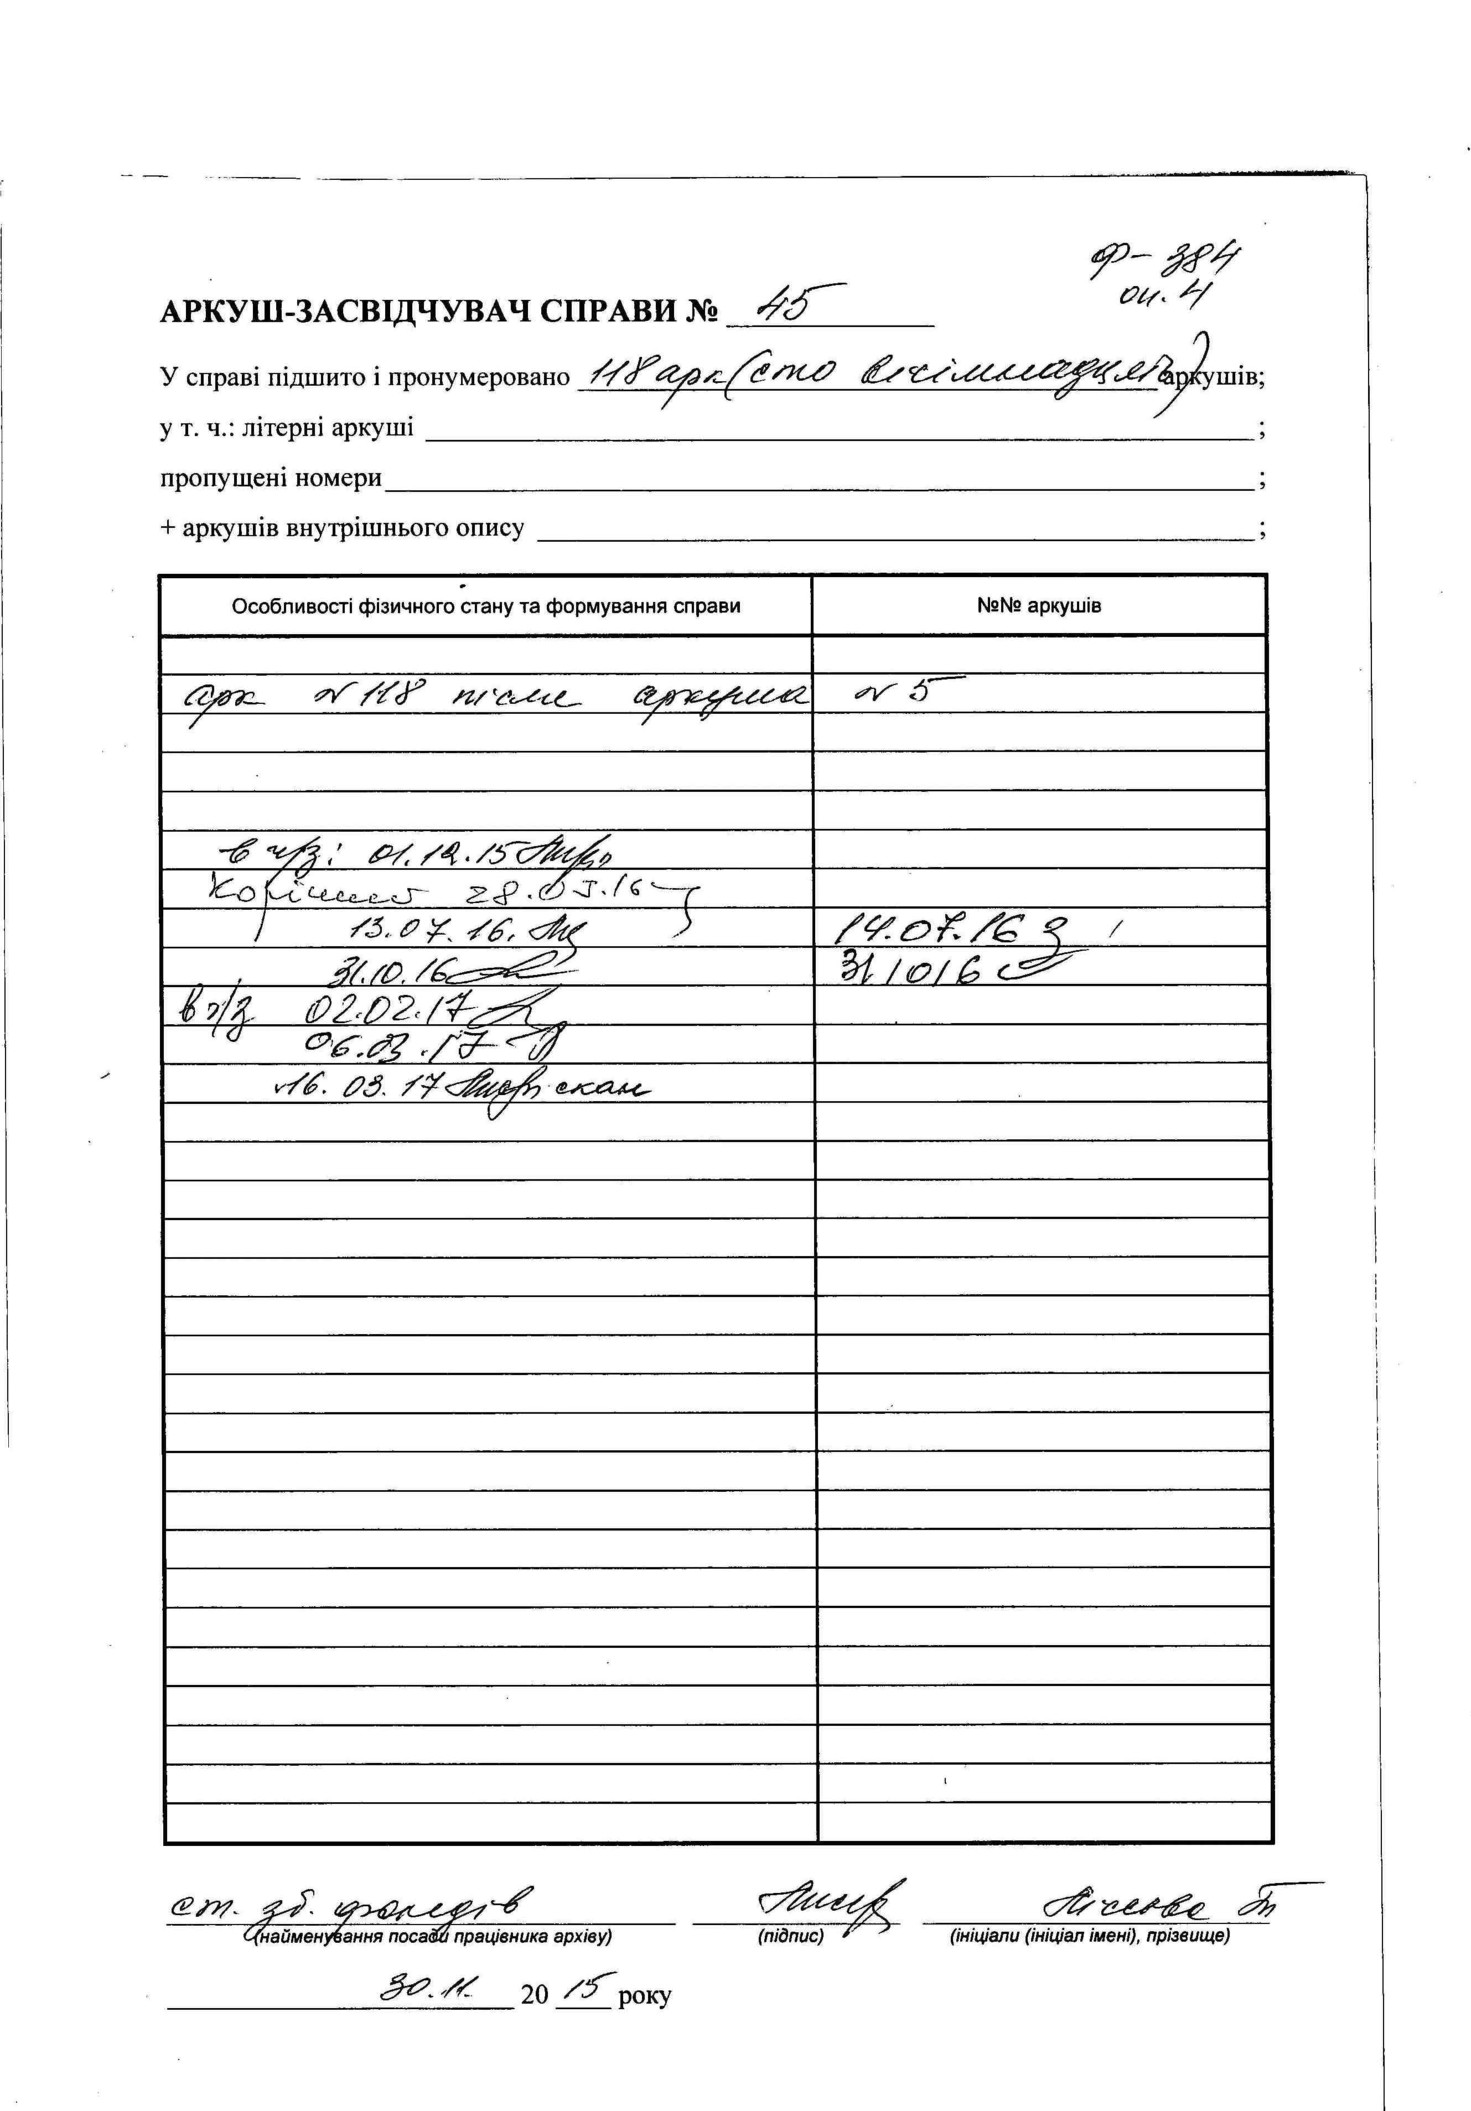 ф- 384
оп. 4
АРКУШ-ЗАСВІДЧУВАЧ СПРАВИ № 45
У справі підшито і пронумеровано 118 арк (сто вісімнадцять) аркушів;
у т. ч.: літерні аркуші ;
пропущені номери ;
+ аркушів внутрішнього опису ;
Особливості фізичного стану та формування справи №№ аркушів
арк N 118 після аркуша N 5
в ч/з: 01.12.15
28.03.16
13.07.16. 14.07.16
31.10.16 311016
в ч/з 02.02.17
06.03.17
16.03.17 скан
ст. зб. фондів
(найменування посади працівника архіву) (підпис) (ініціали (ініціал імені), прізвище)
30.11. 20 15 року